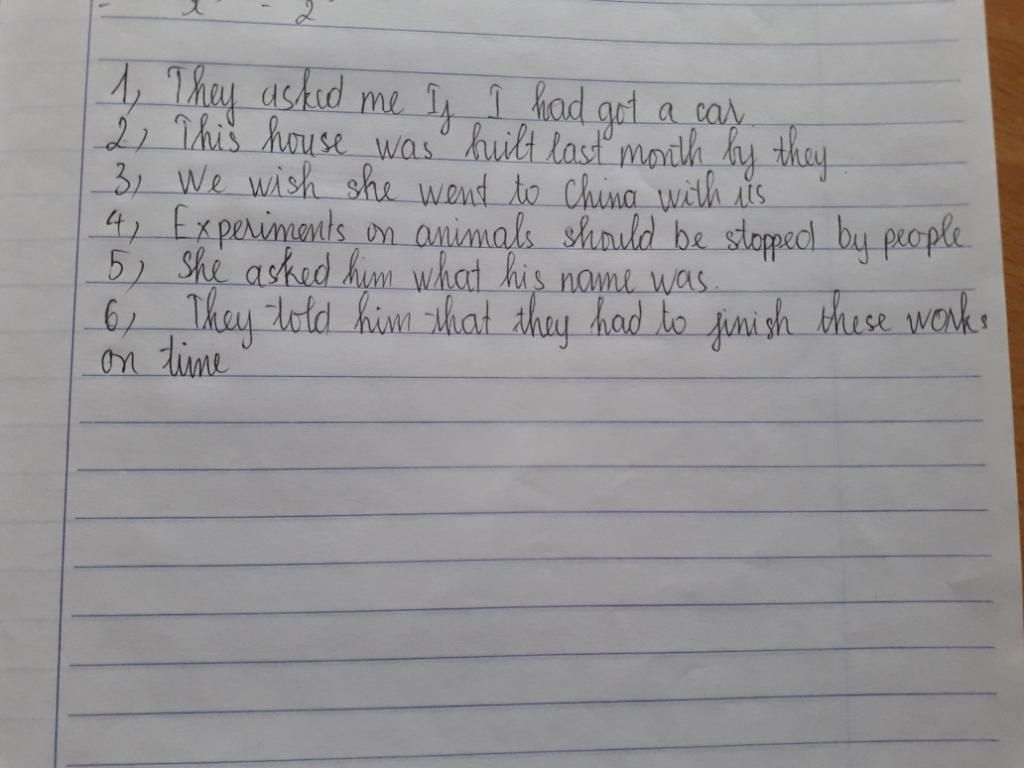 1, They asked me If I had got a car
2, This house was built last month by they
3, We wish she went to China with us
4, Experiments on animals should be stopped by people
5, She asked him what his name was.
6, They told him that they had to finish these works
on time